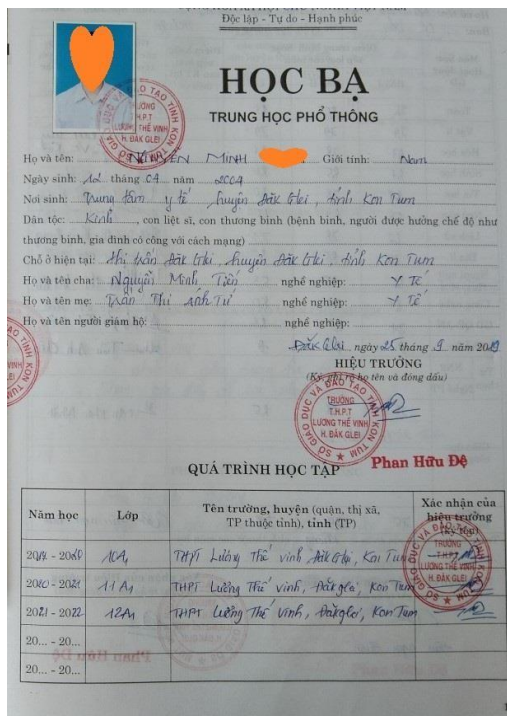 Độc lập - Tự do - Hạnh phúc
HỌC BẠ
TRUNG HỌC PHỔ THÔNG
Họ và tên: NGUYỄN MINH Giới tính: Nam
Ngày sinh: 12 tháng 04 năm 2004
Nơi sinh: Trung tâm y tế, huyện Đăk Glei, tỉnh Kon Tum
Dân tộc: Kinh, con liệt sĩ, con thương binh (bệnh binh, người được hưởng chế độ như
thương binh, gia đình có công với cách mạng)
Chỗ ở hiện tại: thị trấn Đăk Glei, huyện Đăk Glei, tỉnh Kon Tum
Họ và tên cha: Nguyễn Minh Tiến nghề nghiệp: Y Tế
Họ và tên mẹ: Trần Thị Anh Tư nghề nghiệp: Y Tế
Họ và tên người giám hộ: nghề nghiệp:
Đăk Glei, ngày 25 tháng 9 năm 2019
HIỆU TRƯỞNG
(Ký, ghi rõ họ tên và đóng dấu)
SỞ GIÁO DỤC VÀ ĐÀO TẠO TỈNH KON TUM
TRƯỜNG
T.H.P.T
LƯƠNG THẾ VINH
H. ĐĂK GLEI
Phan Hữu Đệ
QUÁ TRÌNH HỌC TẬP
Năm học Lớp Tên trường, huyện (quận, thị xã, TP thuộc tỉnh), tỉnh (TP) Xác nhận của hiệu trưởng (Ký tên)
2019 - 2020 10A1 THPT Lương Thế Vinh, Đăk Glei, Kon Tum
2020 - 2021 11A1 THPT Lương Thế Vinh, Đăk glei, Kon Tum
2021 - 2022 12A1 THPT Lương Thế Vinh, Đăk glei, Kon Tum
20... - 20...
20... - 20...